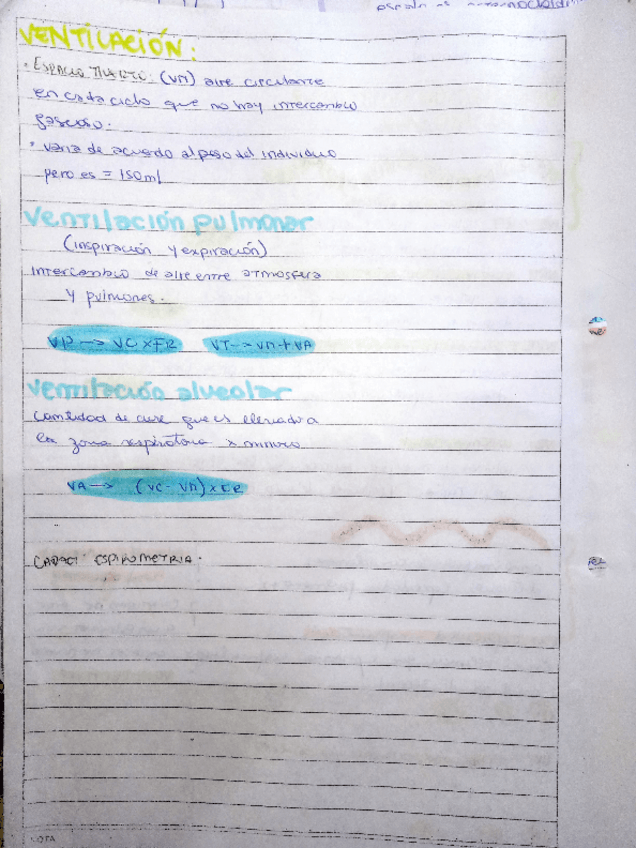 VENTILACIÓN:
• ESPACIO MUERTO: (VM) aire circulante
en cada ciclo que no hay intercambio
gaseoso.
• varia de acuerdo al peso del individuo
pero es = 150ml
Ventilación pulmonar
(inspiración y expiración)
Intercambio de aire entre atmosfera
y pulmones.
VP → VC x FR VT → VM + VA
Ventilación alveolar
cantidad de aire que es llevado a
la zona respiratoria x minuto
VA → (VC - VM) x FR
ESPIROMETRIA.
NOTA